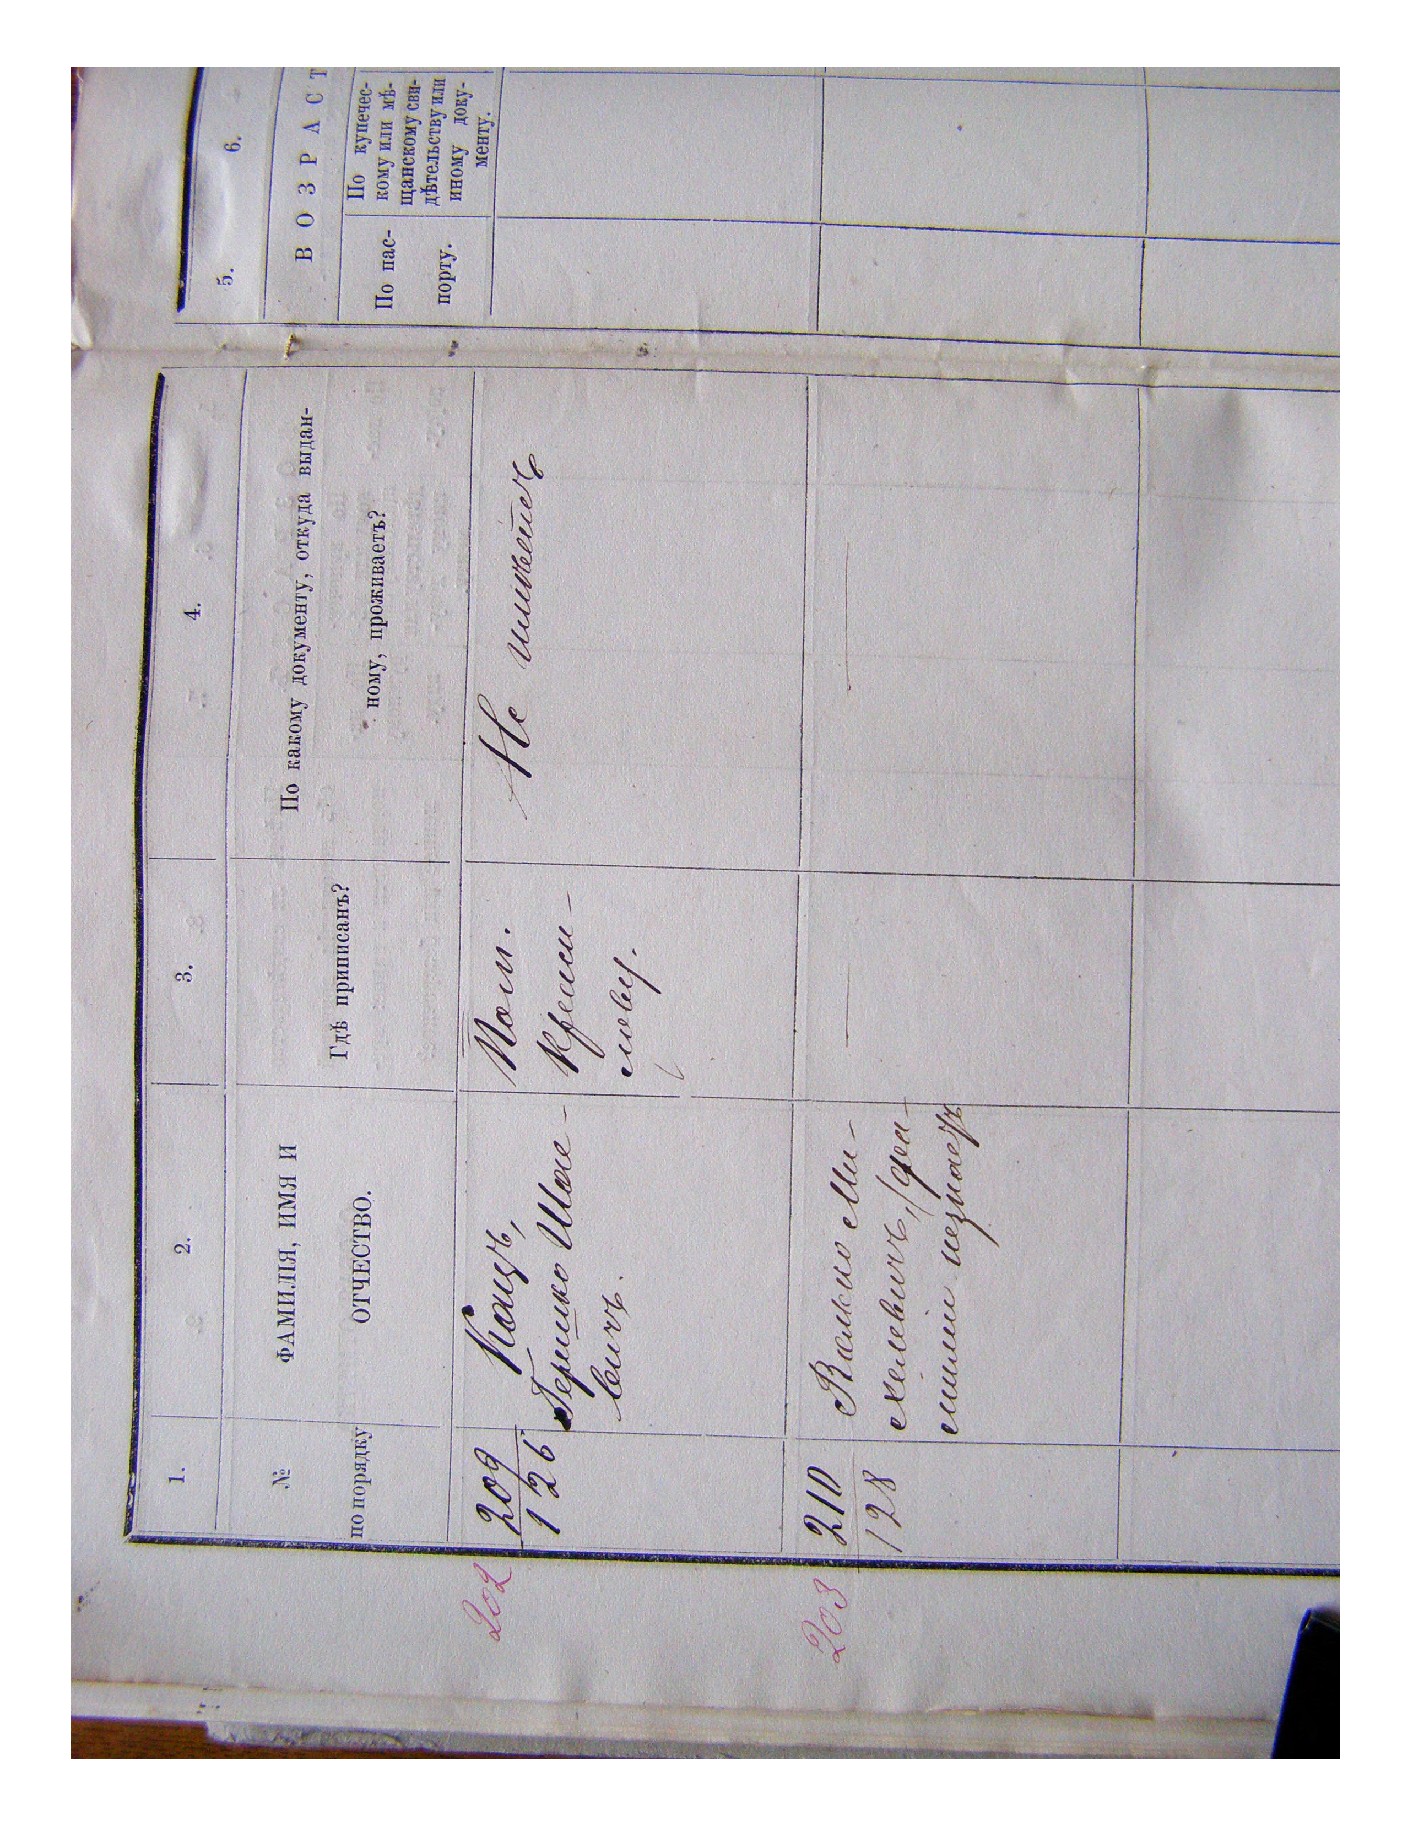 1.
2.
3.
4.
5.
6.
№
по порядку
ФАМИЛІЯ, ИМЯ И
ОТЧЕСТВО.
Гдѣ приписанъ?
По какому документу, откуда выдан-
ному, проживаетъ?
ВОЗРАСТ
По пас-
порту.
По купечес-
кому или мѣ-
щанскому сви-
дѣтельству или
иному доку-
менту.
202
209
126
Кацъ,
Гершко Шое-
вичъ.
Пом.
Краси-
лову.
Не имѣетъ
203
210
128
Валько Ми-
хелевичъ, /фа-
миліи незнаетъ